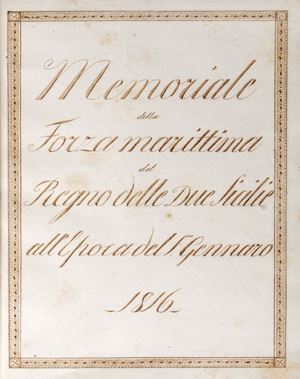 Memoriale
della
Forza marittima
del
Regno delle Due Sicilie
all'Epoca del 1º Gennaro
1816